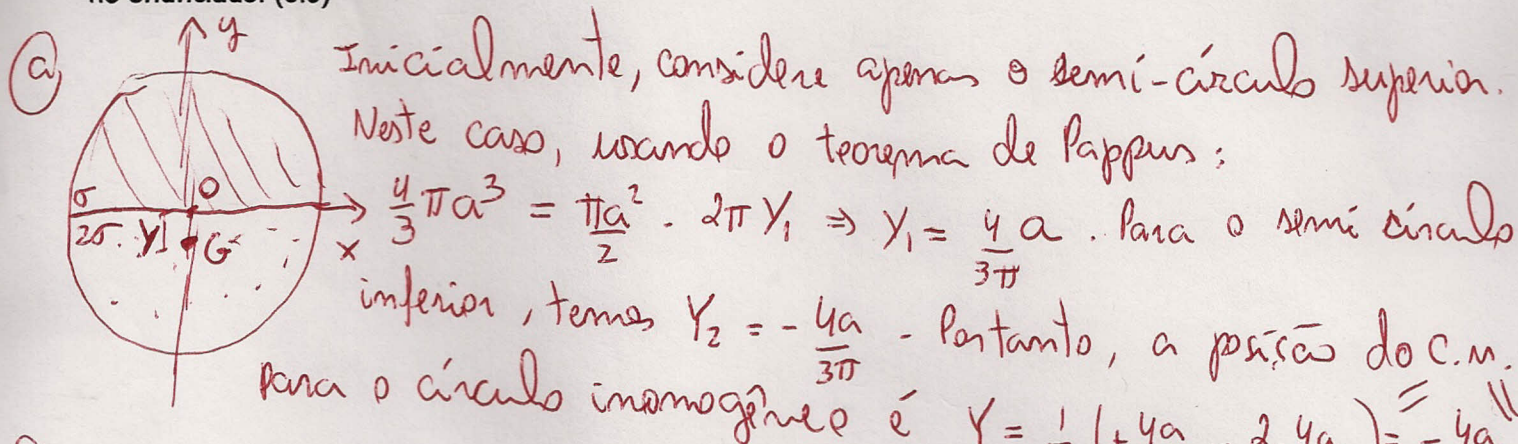 a) y Inicialmente, considere apenas o semi-círculo superior.
Neste caso, usando o teorema de Pappus:
σ O x 4/3 πa³ = πa²/2 · 2πY₁ ⇒ Y₁ = 4/3π a. Para o semi círculo
2σ Y G inferior, temos Y₂ = - 4a/3π. Portanto, a posição do C.M.
para o círculo inomogêneo é Y =